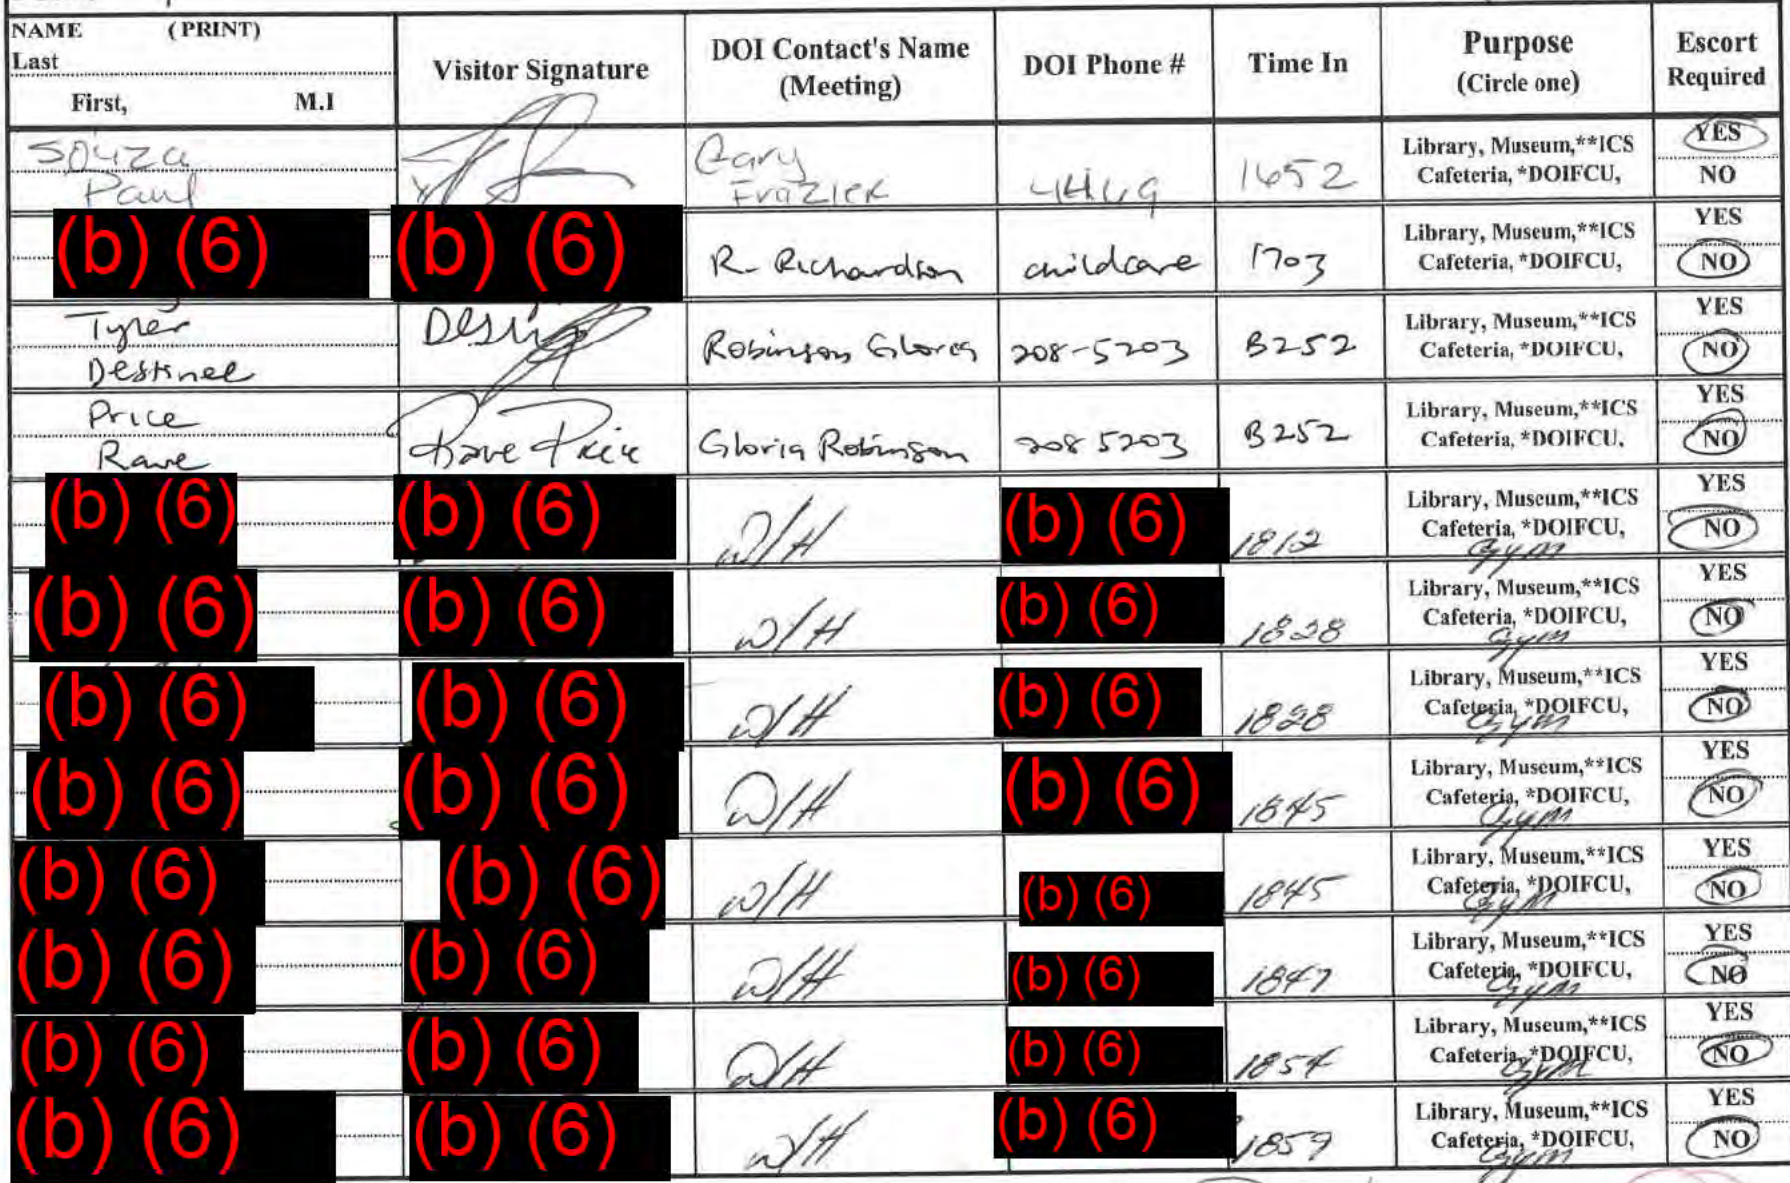 NAME (PRINT)
Last
First, M.I
Visitor Signature
DOI Contact's Name
(Meeting)
DOI Phone #
Time In
Purpose
(Circle one)
Escort
Required
Souza
Paul
Gary
Frazier
4469
1652
Library, Museum,**ICS
Cafeteria, *DOIFCU,
YES
NO
(b) (6) (b) (6)
R. Richardson
childcare
1703
Library, Museum,**ICS
Cafeteria, *DOIFCU,
YES
NO
Tyler
Destinee
Robinson Gloria
208-5203
B252
Library, Museum,**ICS
Cafeteria, *DOIFCU,
YES
NO
Price
Rave
Rave Price
Gloria Robinson
208 5203
B252
Library, Museum,**ICS
Cafeteria, *DOIFCU,
YES
NO
(b) (6) (b) (6) W/H (b) (6) 1812
Library, Museum,**ICS
Cafeteria, *DOIFCU,
Gym
YES
NO
(b) (6) (b) (6) W/H (b) (6) 1828
Library, Museum,**ICS
Cafeteria, *DOIFCU,
Gym
YES
NO
(b) (6) (b) (6) W/H (b) (6) 1828
Library, Museum,**ICS
Cafeteria, *DOIFCU,
Gym
YES
NO
(b) (6) (b) (6) W/H (b) (6) 1845
Library, Museum,**ICS
Cafeteria, *DOIFCU,
Gym
YES
NO
(b) (6) (b) (6) W/H (b) (6) 1845
Library, Museum,**ICS
Cafeteria, *DOIFCU,
Gym
YES
NO
(b) (6) (b) (6) W/H (b) (6) 1847
Library, Museum,**ICS
Cafeteria, *DOIFCU,
Gym
YES
NO
(b) (6) (b) (6) W/H (b) (6) 1854
Library, Museum,**ICS
Cafeteria, *DOIFCU,
Gym
YES
NO
(b) (6) (b) (6) W/H (b) (6) 1859
Library, Museum,**ICS
Cafeteria, *DOIFCU,
Gym
YES
NO